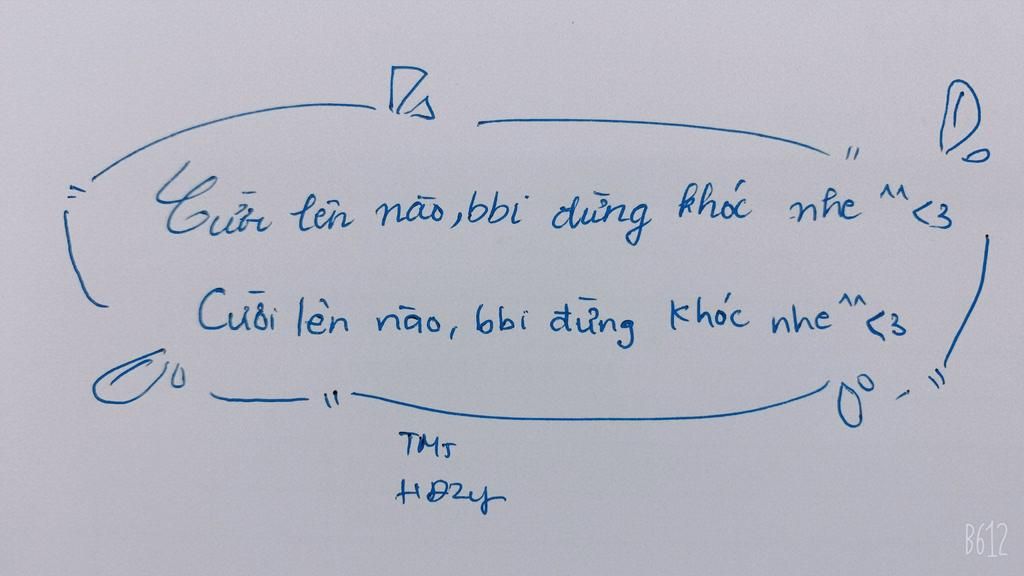 Cười lên nào, bbi đừng khóc nhe ^^ <3
Cười lên nào, bbi đừng khóc nhe ^^ <3
B612